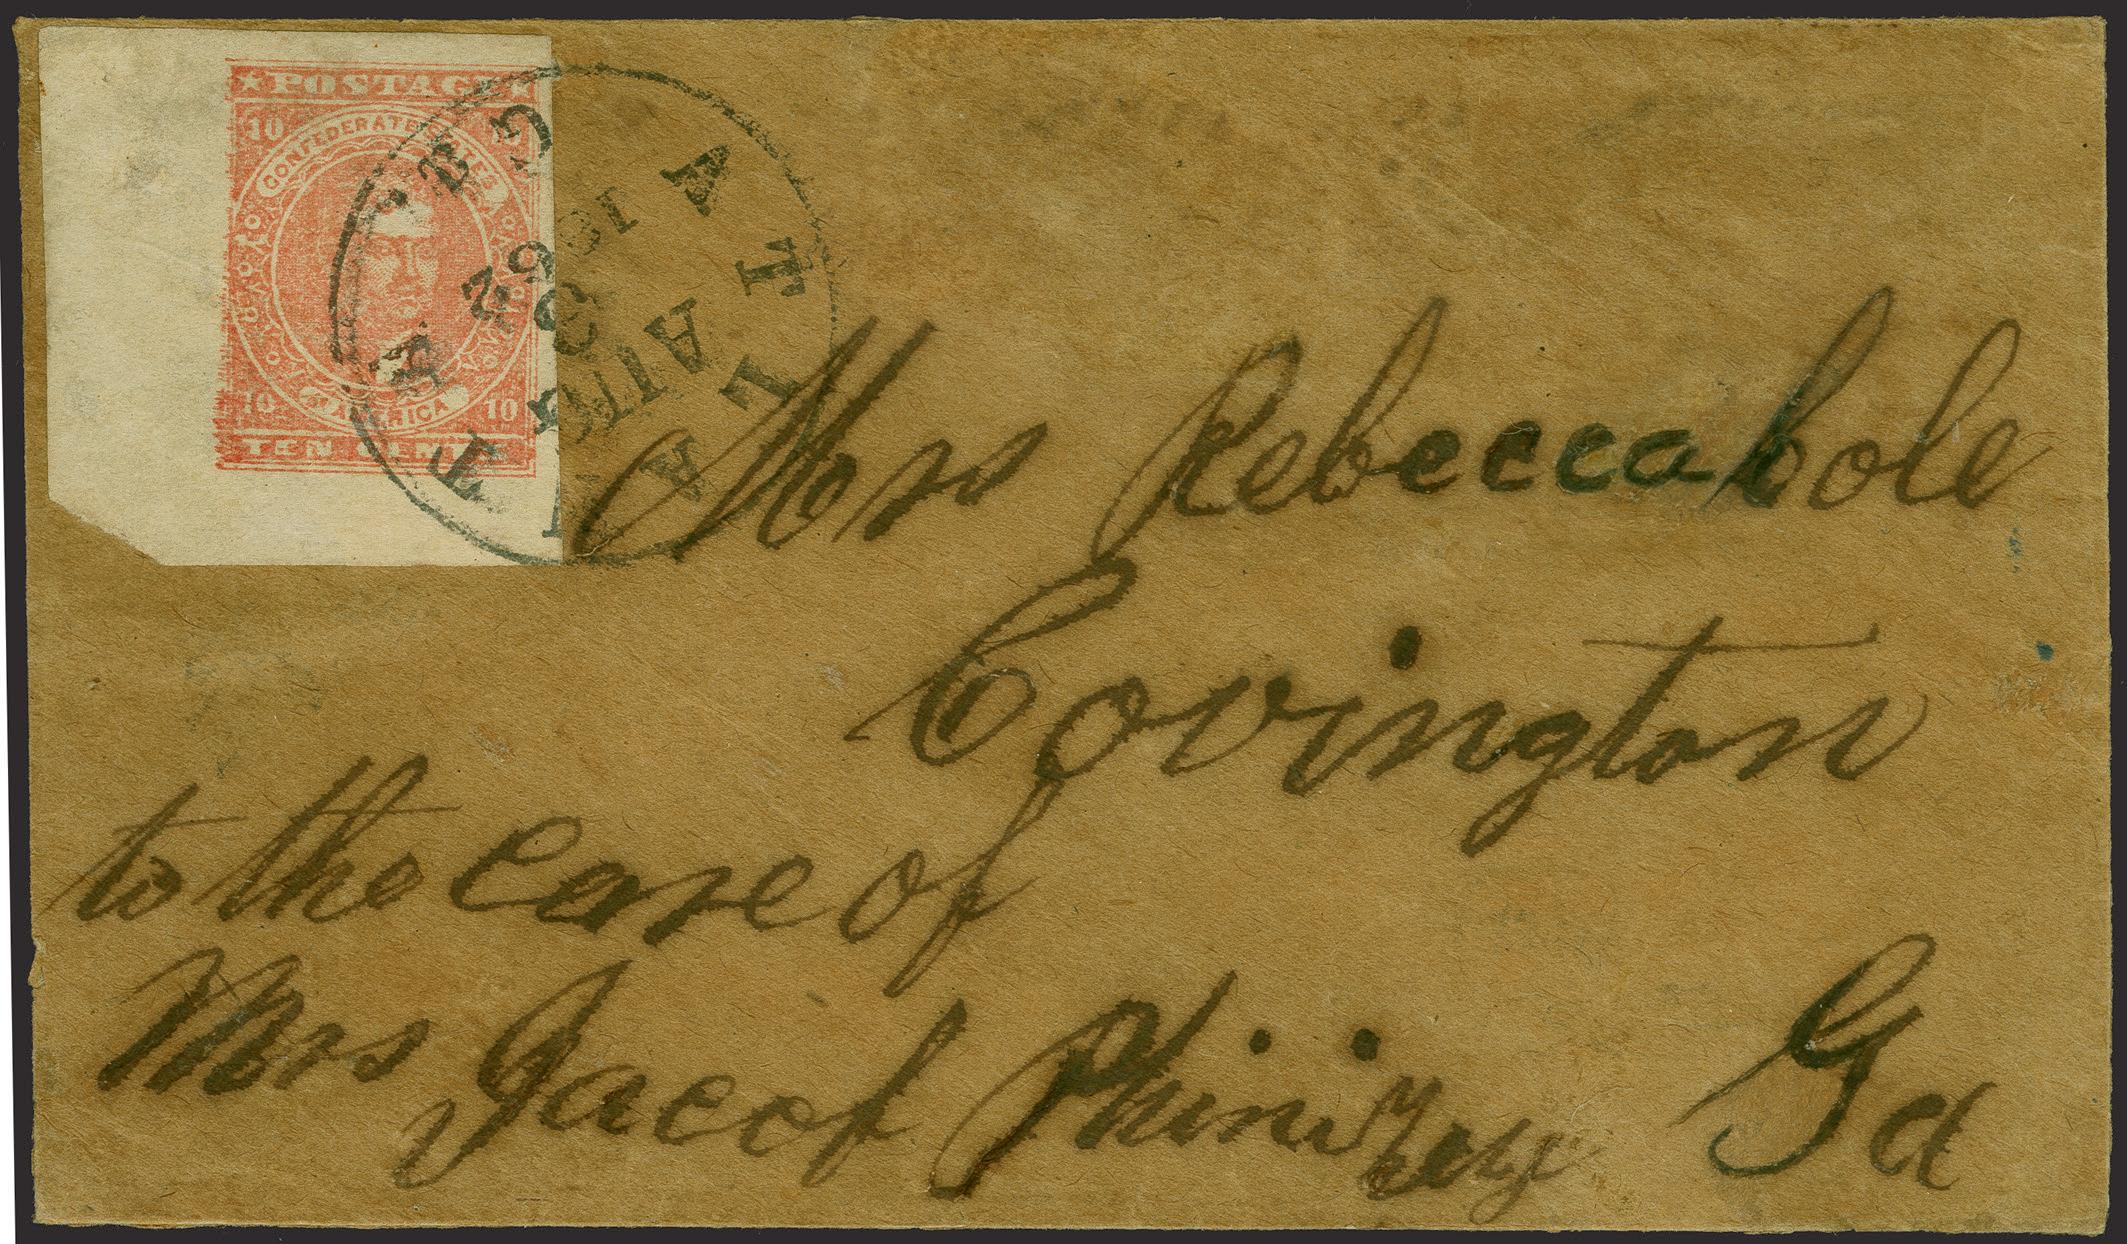 ★ POSTAGE ★
10 10
CONFEDERATE STATES
OF AMERICA
10 10
TEN CENTS
ATLANTA
GA
1862
Mrs Rebecca Cole
Covington
to the care of
Mrs Jacob Phinizey Ga